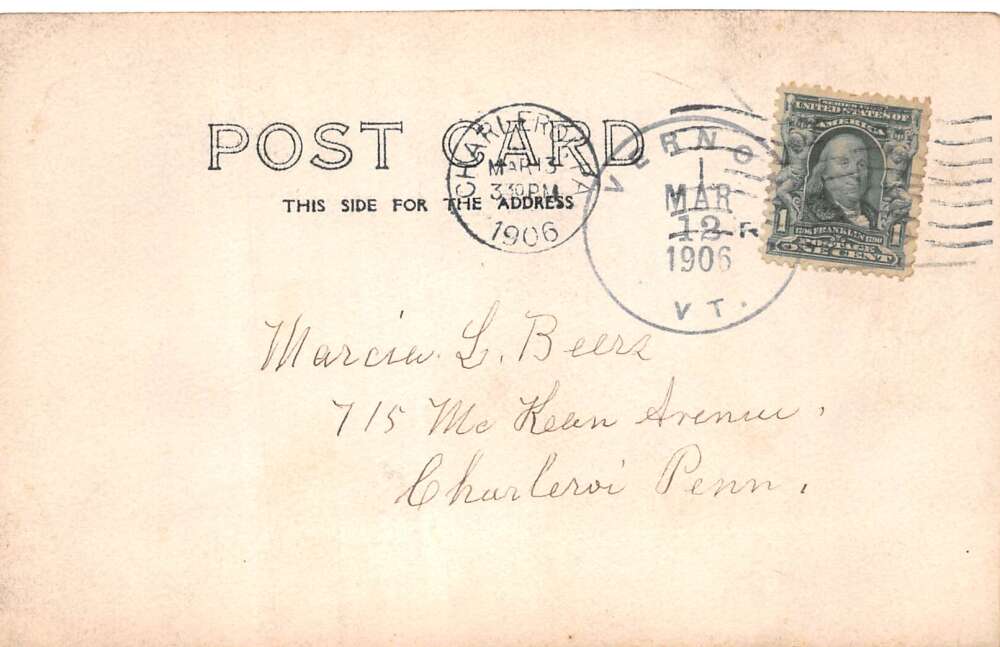 POST CARD
THIS SIDE FOR THE ADDRESS
CHARLEROI, PA
MAR 13
3 30 PM
1906
VERNON
1
MAR
12
R
1906
VT.
SERIES 1902
UNITED STATES OF
AMERICA
1706 FRANKLIN 1790
1 POSTAGE 1
ONE CENT
Marcia L. Beers
715 McKean Avenue,
Charleroi Penn.